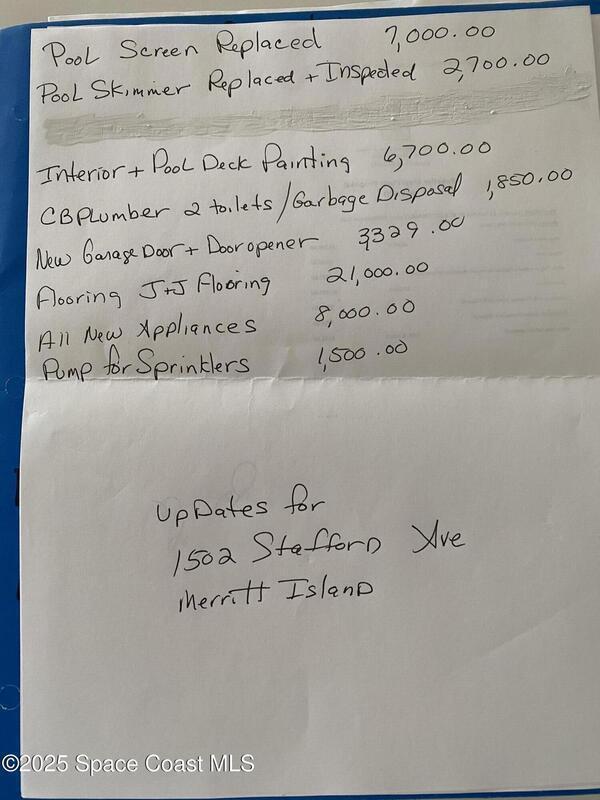 Pool Screen Replaced 7,000.00
Pool Skimmer Replaced + Inspected 2,700.00
Interior + Pool Deck Painting 6,700.00
CBPlumber 2 toilets/Garbage Disposal 1,850.00
New Garage Door + Door opener 3,329.00
Flooring J+J Flooring 21,000.00
All New Appliances 8,000.00
Pump for Sprinklers 1,500.00
UpDates for
1502 Stafford Ave
Merritt Island
©2025 Space Coast MLS